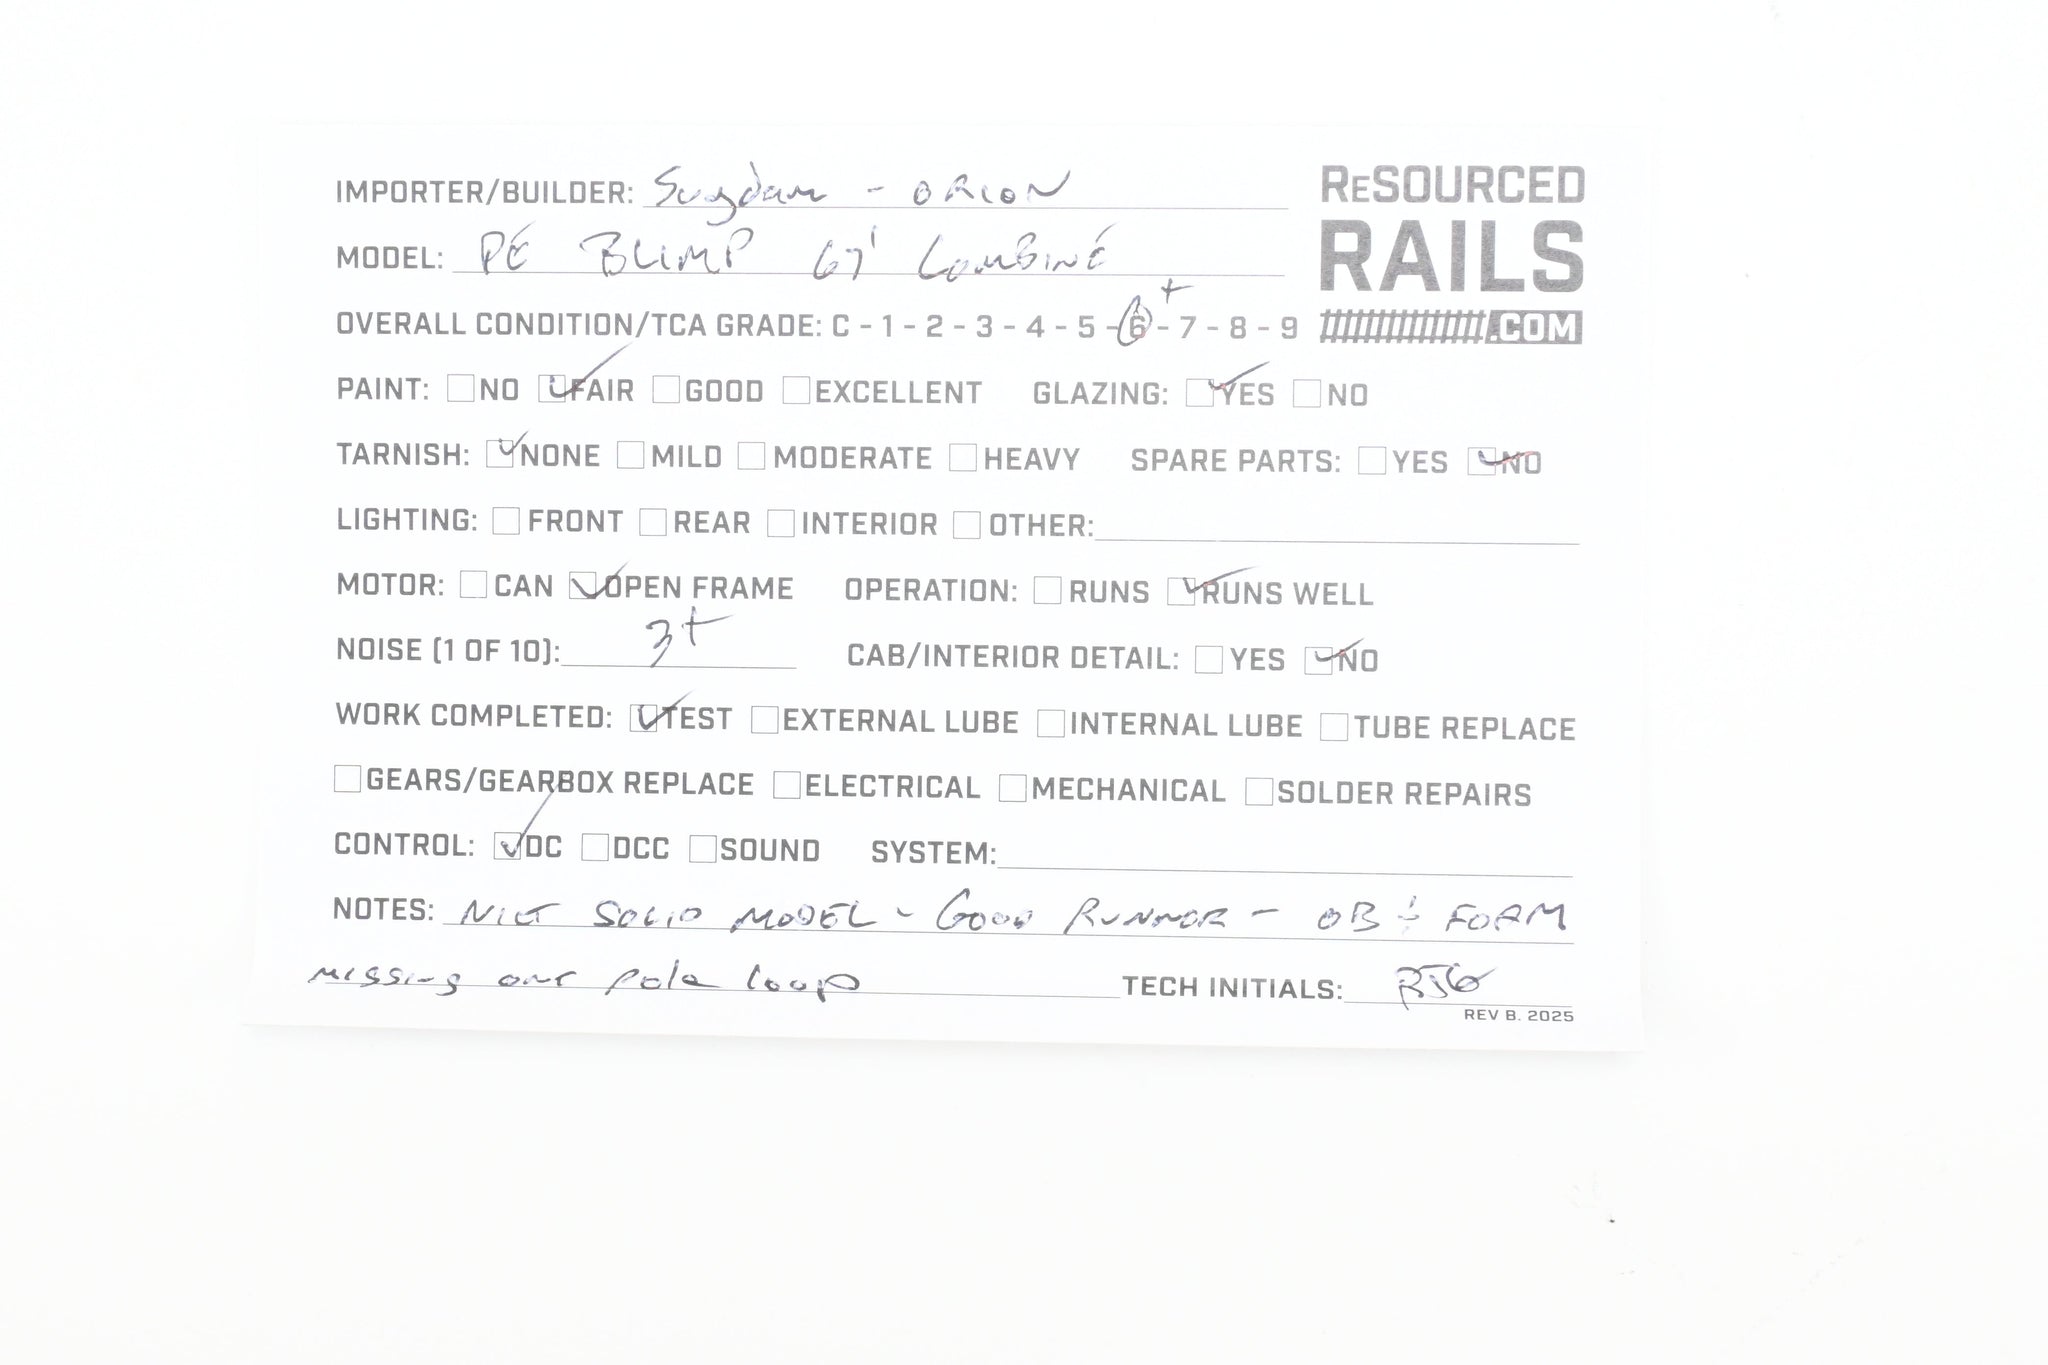 IMPORTER/BUILDER: Suydam - ORION
ReSOURCED
RAILS
.COM
MODEL: PE BLIMP 67' COMBINE
OVERALL CONDITION/TCA GRADE: C - 1 - 2 - 3 - 4 - 5 - 6+ - 7 - 8 - 9
PAINT: ☐ NO ☑ FAIR ☐ GOOD ☐ EXCELLENT GLAZING: ☑ YES ☐ NO
TARNISH: ☑ NONE ☐ MILD ☐ MODERATE ☐ HEAVY SPARE PARTS: ☐ YES ☑ NO
LIGHTING: ☐ FRONT ☐ REAR ☐ INTERIOR ☐ OTHER:
MOTOR: ☐ CAN ☑ OPEN FRAME OPERATION: ☐ RUNS ☑ RUNS WELL
NOISE (1 OF 10): 3+ CAB/INTERIOR DETAIL: ☐ YES ☑ NO
WORK COMPLETED: ☑ TEST ☐ EXTERNAL LUBE ☐ INTERNAL LUBE ☐ TUBE REPLACE
☐ GEARS/GEARBOX REPLACE ☐ ELECTRICAL ☐ MECHANICAL ☐ SOLDER REPAIRS
CONTROL: ☑ DC ☐ DCC ☐ SOUND SYSTEM:
NOTES: NICE SOLID MODEL - GOOD RUNNER - OB & FOAM
missing one pole loop TECH INITIALS: RJG
REV B. 2025